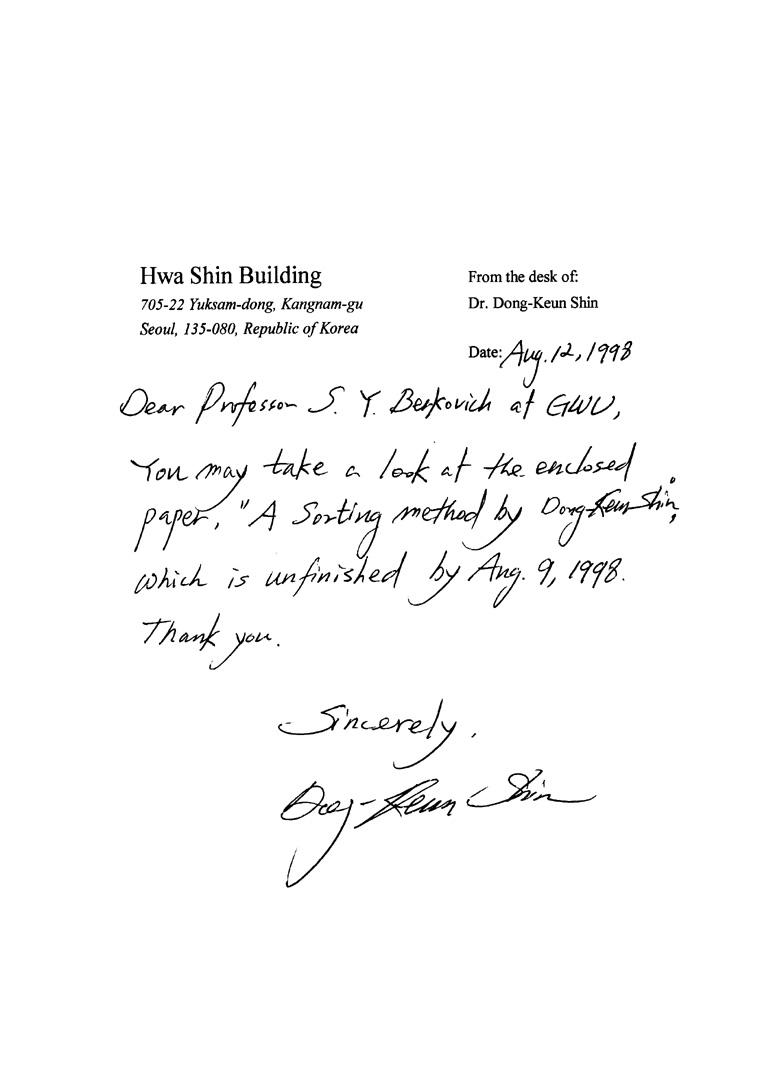 Hwa Shin Building
705-22 Yuksam-dong, Kangnam-gu
Seoul, 135-080, Republic of Korea
From the desk of:
Dr. Dong-Keun Shin
Date: Aug. 12, 1998
Dear Professor S. Y. Berkovich at GWU,
You may take a look at the enclosed
paper, "A Sorting method by Dong-Keun Shin,"
which is unfinished by Aug. 9, 1998.
Thank you.
Sincerely,
Dong-Keun Shin